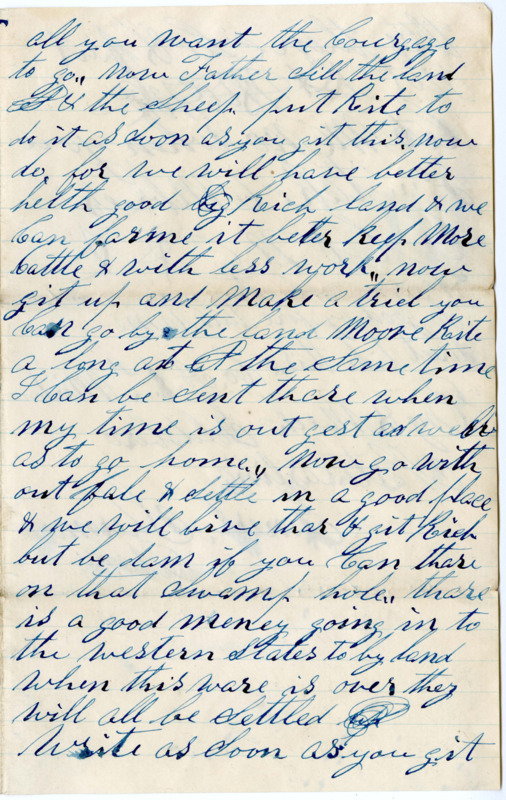 all you want the Courgage
to go,, now Father Sill the land
& the Sheep put Rite to
do it as soon as you git this now
do, for we will have better
helth good Rich land & we
Can farme it beter keep More
Cattle & with less work,, now
git up and Make a trick you
Can go by the land Moove Rite
a long at the Same time
I Can be Sent thare when
my time is out gest as well
as to go home,, Now go with
out fale & Settle in a good place
& we will live thar & git Rich
but be dam if you Can thare
on that Swamp hole,, thare
is a good meney going in to
the western States to by land
when this ware is over they
will all be Settled
Write as Soon as you git